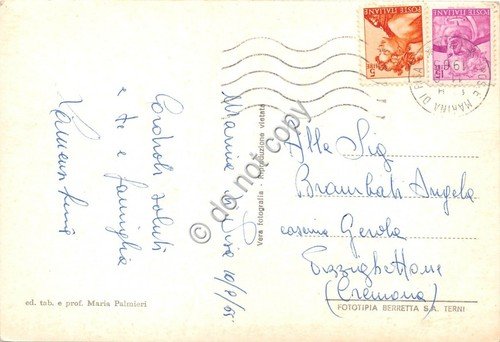 Marina di Pisa 10/8/65
Cordiali saluti
a te e famiglia
Alla Sig.
Brambati Angela
cascina Gerola
Pizzighettone
(Cremona)
Vera fotografia - Riproduzione vietata
ed. tab. e prof. Maria Palmieri
FOTOTIPIA BERRETTA S.A. TERNI
POSTE ITALIANE
5
POSTE ITALIANE
15
MARINA DI PISA
1965
© do not copy